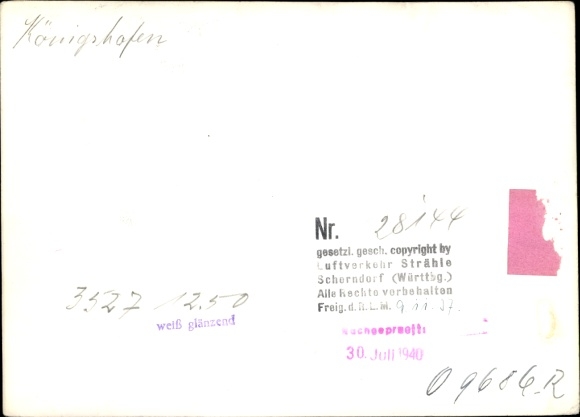 Königshofen
Nr. 28144
gesetzl. gesch. copyright by
Luftverkehr Strähle
Schorndorf (Württbg.)
Alle Rechte vorbehalten
Freig. d. R.L.M. 9.11.37.
3527 12.50
weiß glänzend
Nachgeprüft:
30. Juli 1940
O 9686-R